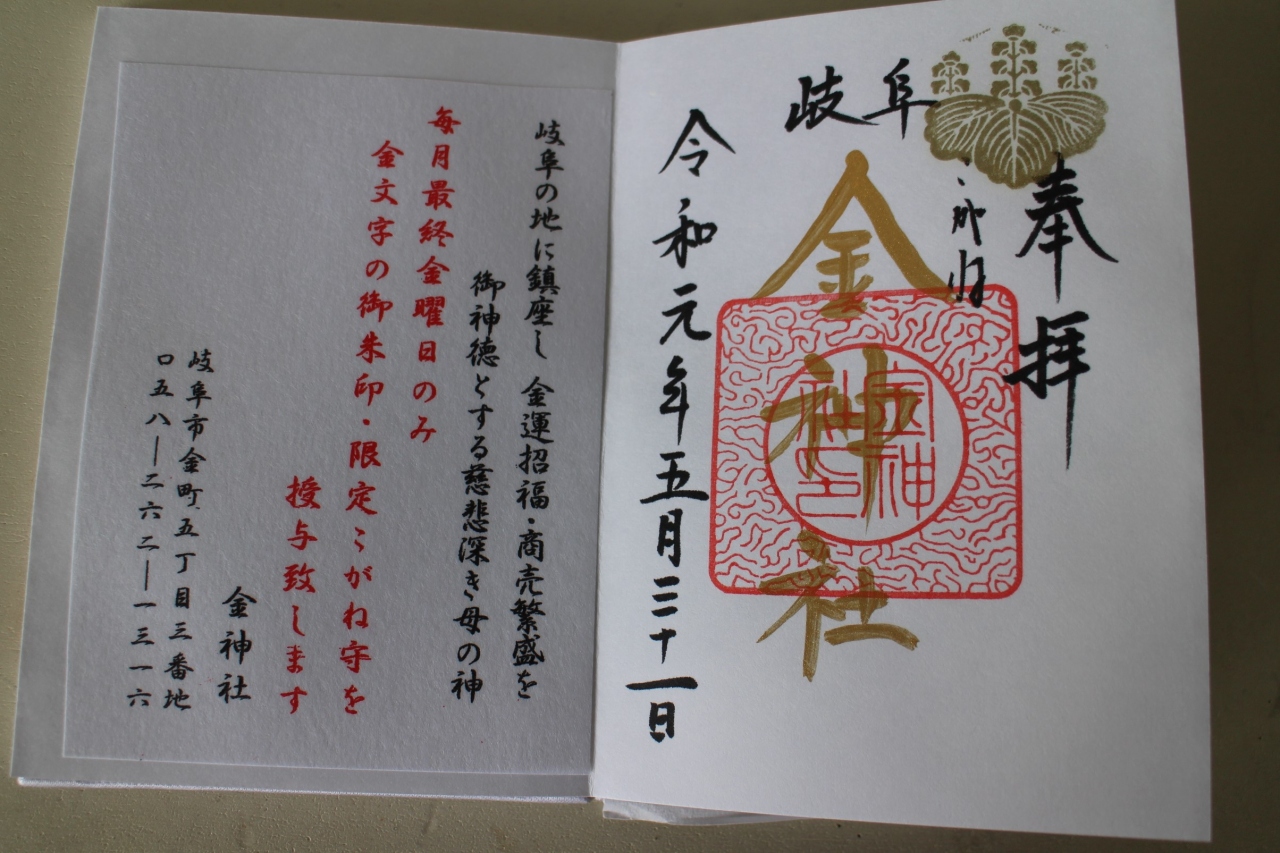 奉拝
岐阜
金神社
令和元年五月三十一日
岐阜の地に鎮座し 金運招福・商売繁盛を
御神徳とする慈悲深き母の神
毎月最終金曜日のみ
金文字の御朱印・限定こがね守を
授与致します
金神社
岐阜市金町五丁目三番地
〇五八―二六二―一三一六